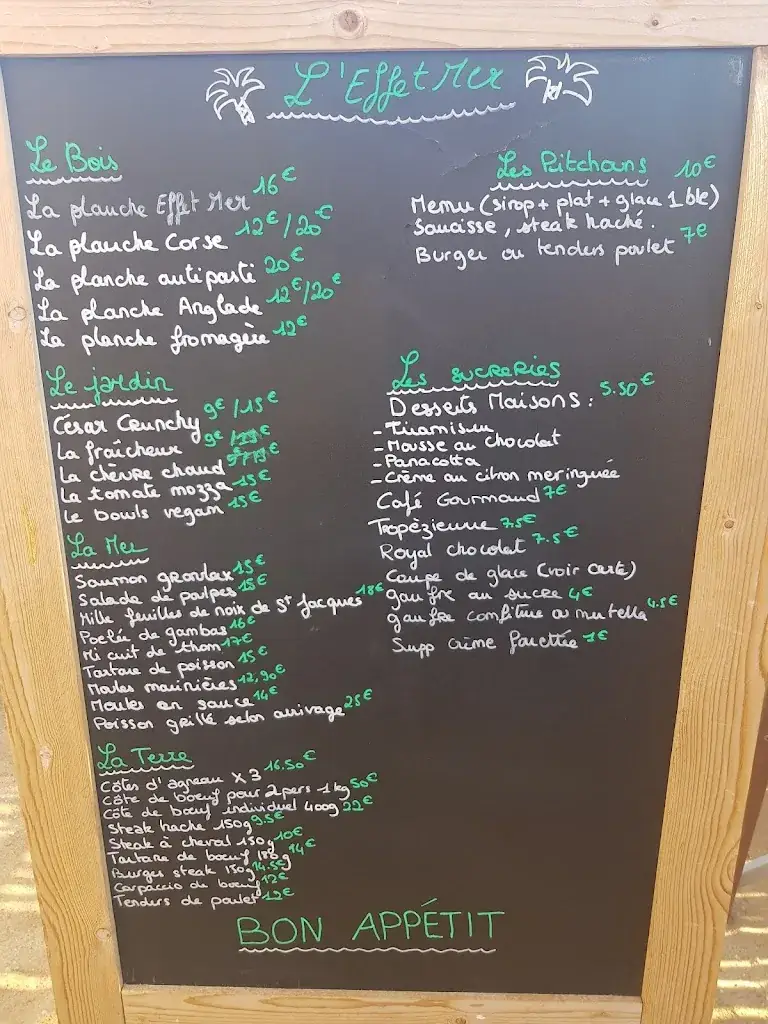 L'Effet Mer
Le Bois
La planche Effet Mer 16€
La planche Corse 12€/20€
La planche antipasti 20€
La planche Anglade 12€/20€
La planche fromagère 12€
Le jardin
César Crunchy 9€/15€
La fraîcheur 9€
La chèvre chaud
La tomate mozza 15€
Le bowls vegan 15€
La Mer
Saumon gravlax 15€
Salade de poulpes 15€
Mille feuilles de noix de St Jacques 18€
Poelée de gambas 16€
Mi cuit de thon 17€
Tartare de poisson 15€
Moules marinières 12,90€
Moules en sauce 14€
Poisson grillé selon arrivage 25€
La Terre
Côtes d'agneau x3 16.50€
Côte de boeuf pour 2 pers 1kg 50€
Côte de boeuf individuel 400g 22€
Steak haché 150g 9.5€
Steak à cheval 150g 10€
Tartare de boeuf 180g 14€
Burger steak 150g 14.5€
Carpaccio de boeuf 12€
Tenders de poulet 12€
Les Pitchouns 10€
Menu (sirop + plat + glace 1 ble)
Saucisse, steak haché.
Burger ou tenders poulet 7€
Les sucreries
Desserts Maisons : 5.50€
- Tiramisu
- Mousse au chocolat
- Panacotta
- Crème au citron meringuée
Café Gourmand 7€
Tropèzienne 7.5€
Royal chocolat 7.5€
Coupe de glace (voir carte)
gaufre au sucre 4€
gaufre confiture ou nutella 4.5€
Supp crème fouettée 1€
BON APPÉTIT